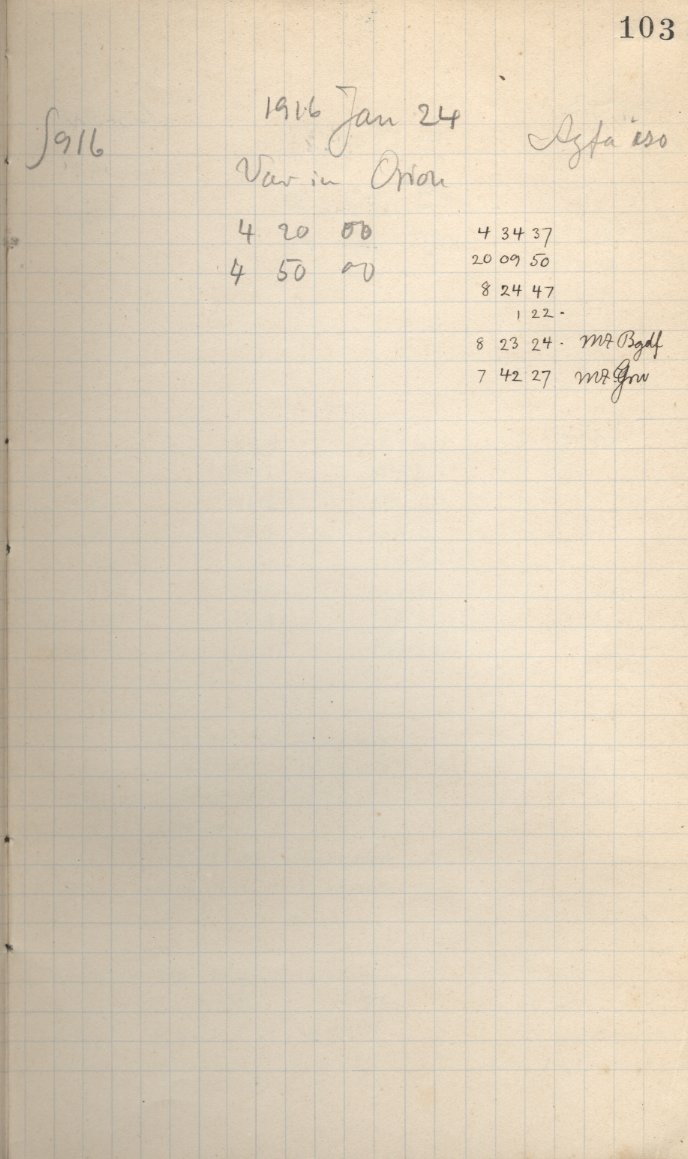 103
1916 Jan 24
S916
Agfa iso
Var in Orion
4 20 00
4 50 00
4 34 37
20 09 50
8 24 47
1 22 -
8 23 24 - MZ Bgdf
7 42 27 MZ Grw